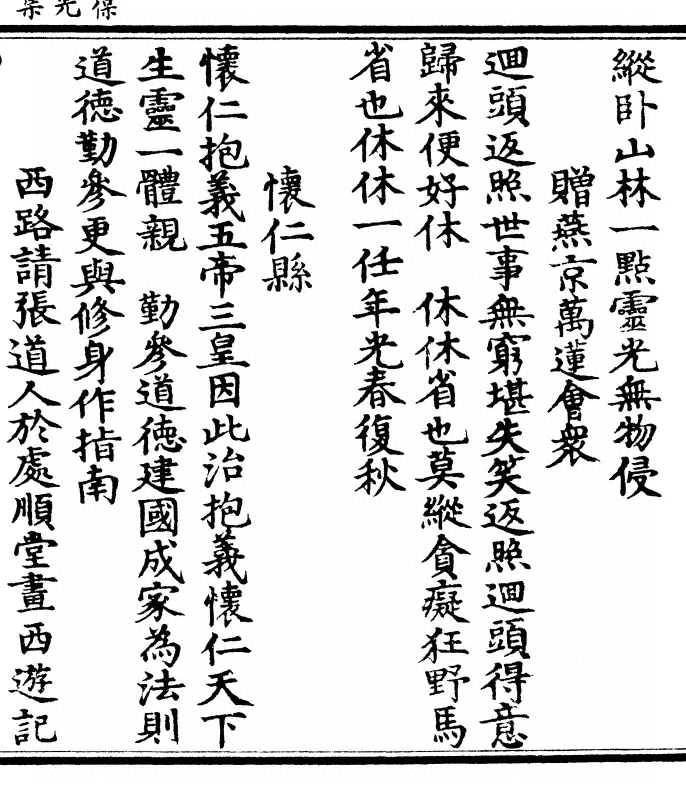 保光集
縱卧山林一點靈光無物侵
贈燕京萬蓮會衆
迴頭返照世事無窮堪失笑返照迴頭得意
歸來便好休　休休省也莫縱貪癡狂野馬
省也休休一任年光春復秋
懷仁縣
懷仁抱義五帝三皇因此治抱義懷仁天下
生靈一體親　勤參道德建國成家為法則
道德勤參更與修身作指南
西路請張道人於處順堂畫西遊記